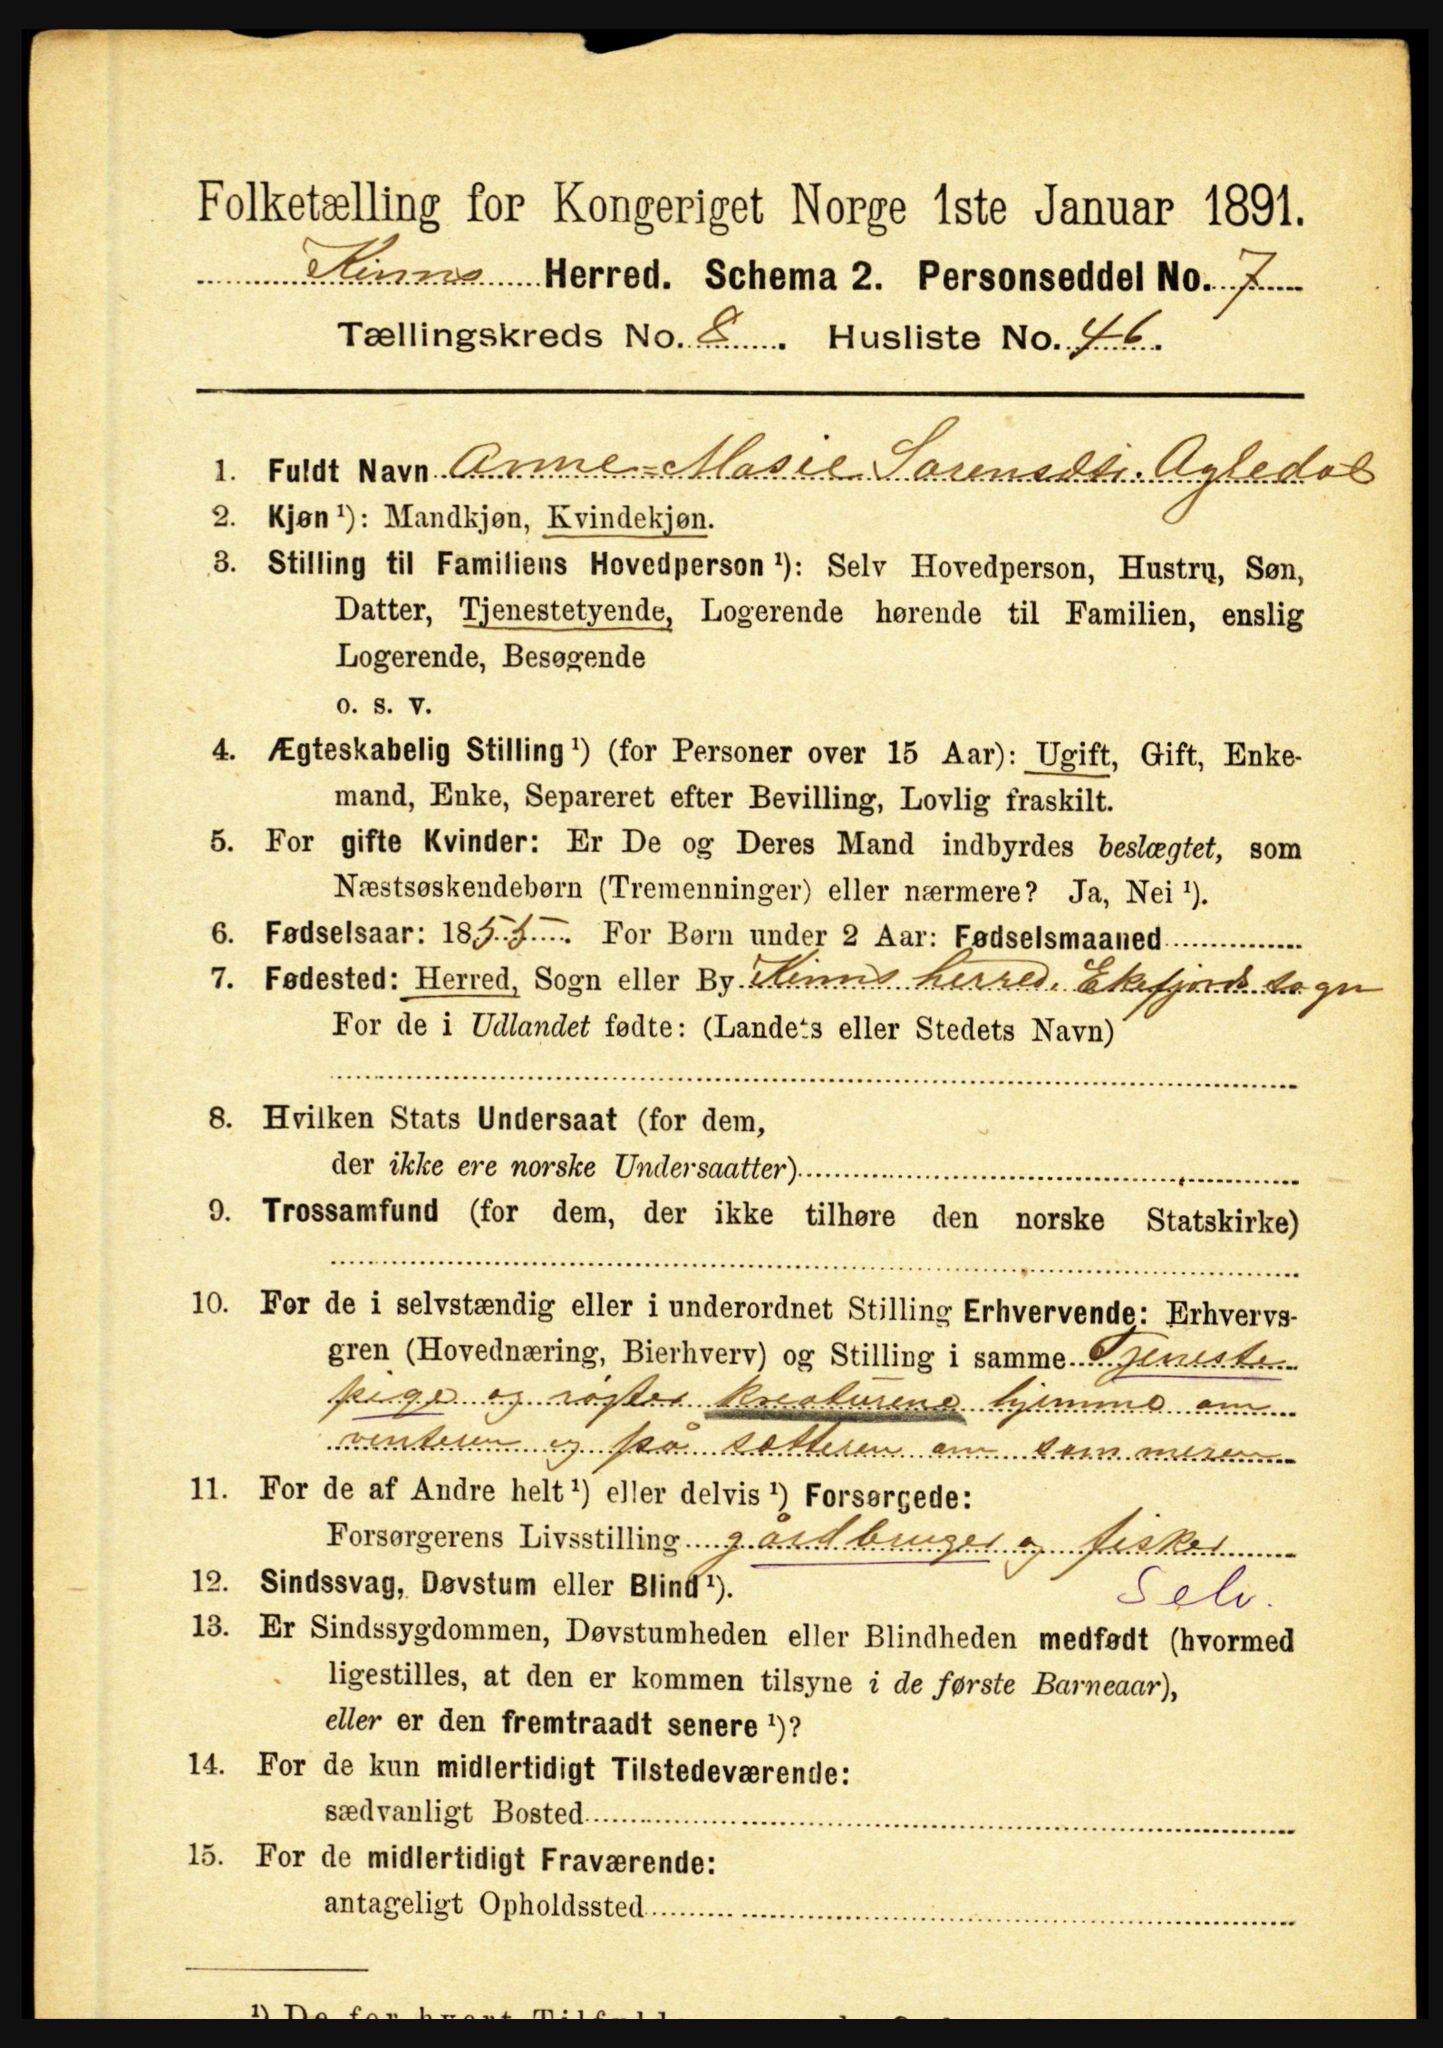 Folketælling for Kongeriget Norge 1ste Januar 1891.
Kinns Herred. Schema 2. Personseddel No. 7
Tællingskreds No. 8. Husliste No. 46.
1. Fuldt Navn Anne=Marie Sørensdtr. Agledal
2. Kjøn ¹): Mandkjøn, Kvindekjøn.
3. Stilling til Familiens Hovedperson ¹): Selv Hovedperson, Hustru, Søn,
Datter, Tjenestetyende, Logerende hørende til Familien, enslig
Logerende, Besøgende
o. s. v.
4. Ægteskabelig Stilling ¹) (for Personer over 15 Aar): Ugift, Gift, Enke-
mand, Enke, Separeret efter Bevilling, Lovlig fraskilt.
5. For gifte Kvinder: Er De og Deres Mand indbyrdes beslægtet, som
Næstsøskendebørn (Tremenninger) eller nærmere? Ja, Nei ¹).
6. Fødselsaar: 1855. For Børn under 2 Aar: Fødselsmaaned
7. Fødested: Herred, Sogn eller By Kinns herred. Ekefjords sogn
For de i Udlandet fødte: (Landets eller Stedets Navn)
8. Hvilken Stats Undersaat (for dem,
der ikke ere norske Undersaatter)
9. Trossamfund (for dem, der ikke tilhøre den norske Statskirke)
10. For de i selvstændig eller i underordnet Stilling Erhvervende: Erhvervs-
gren (Hovednæring, Bierhverv) og Stilling i samme Tjeneste
pige og røgter kreaturene hjemme om
venteren og på sætteren om sommeren
11. For de af Andre helt ¹) eller delvis ¹) Forsørgede:
Forsørgerens Livsstilling gårdbruger og fisker
12. Sindssvag, Døvstum eller Blind ¹). Selv.
13. Er Sindssygdommen, Døvstumheden eller Blindheden medfødt (hvormed
ligestilles, at den er kommen tilsyne i de første Barneaar),
eller er den fremtraadt senere ¹)?
14. For de kun midlertidigt Tilstedeværende:
sædvanligt Bosted
15. For de midlertidigt Fraværende:
antageligt Opholdssted
¹) De for hvert